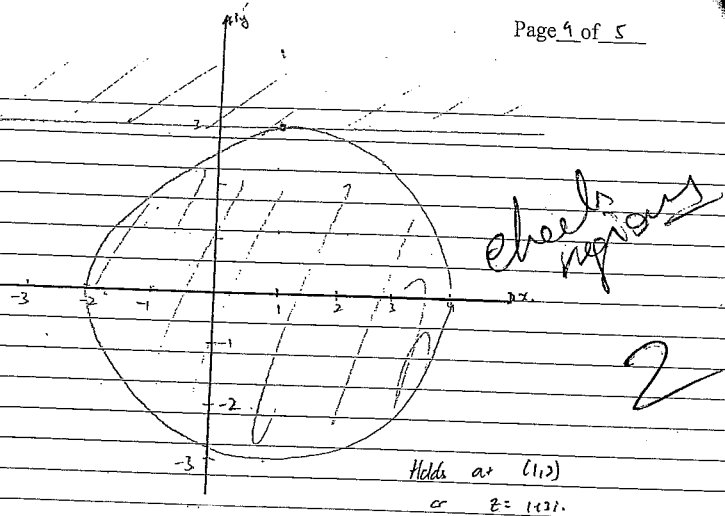 Page 4 of 5
iy
3
-3 -2 -1 1 2 3 4 x.
-1
-2
-3
check
regions
2
Holds at (1,3)
or z = 1+3i.